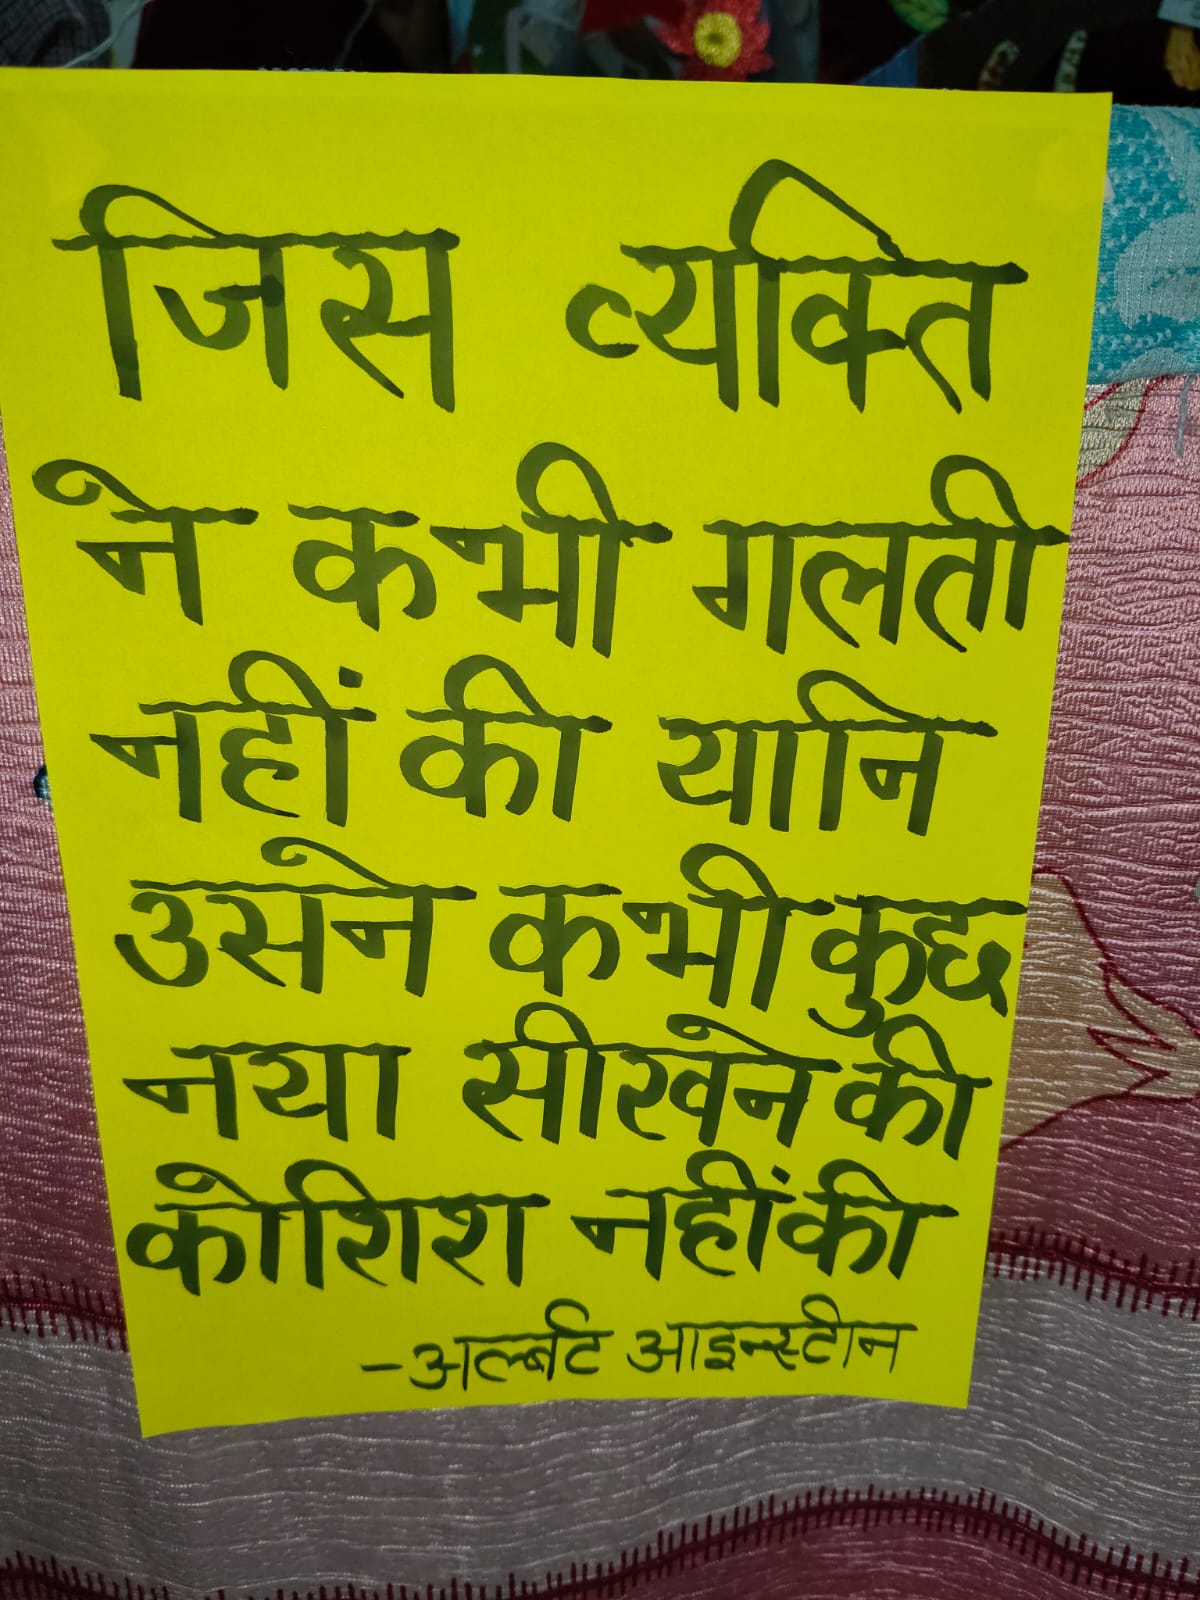 जिस व्यक्ति
ने कभी गलती
नहीं की यानि
उसने कभी कुछ
नया सीखने की
कोशिश नहीं की
-अल्बर्ट आइन्स्टीन